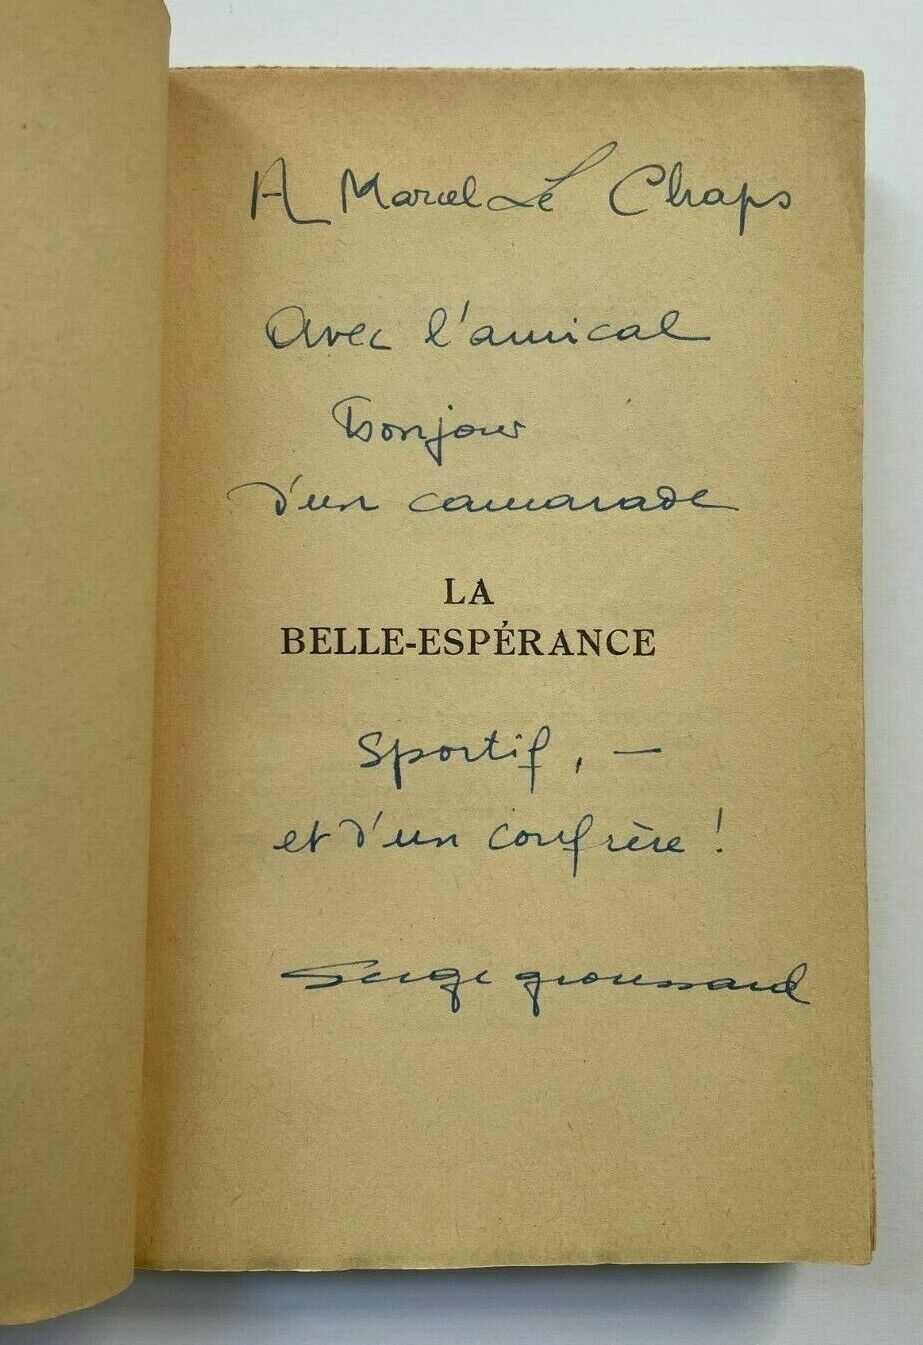 A Marcel Le Chaps
Avec l'amical
Bonjour
d'un camarade
LA
BELLE-ESPÉRANCE
Sportif, —
et d'un confrère !
Serge Groussard